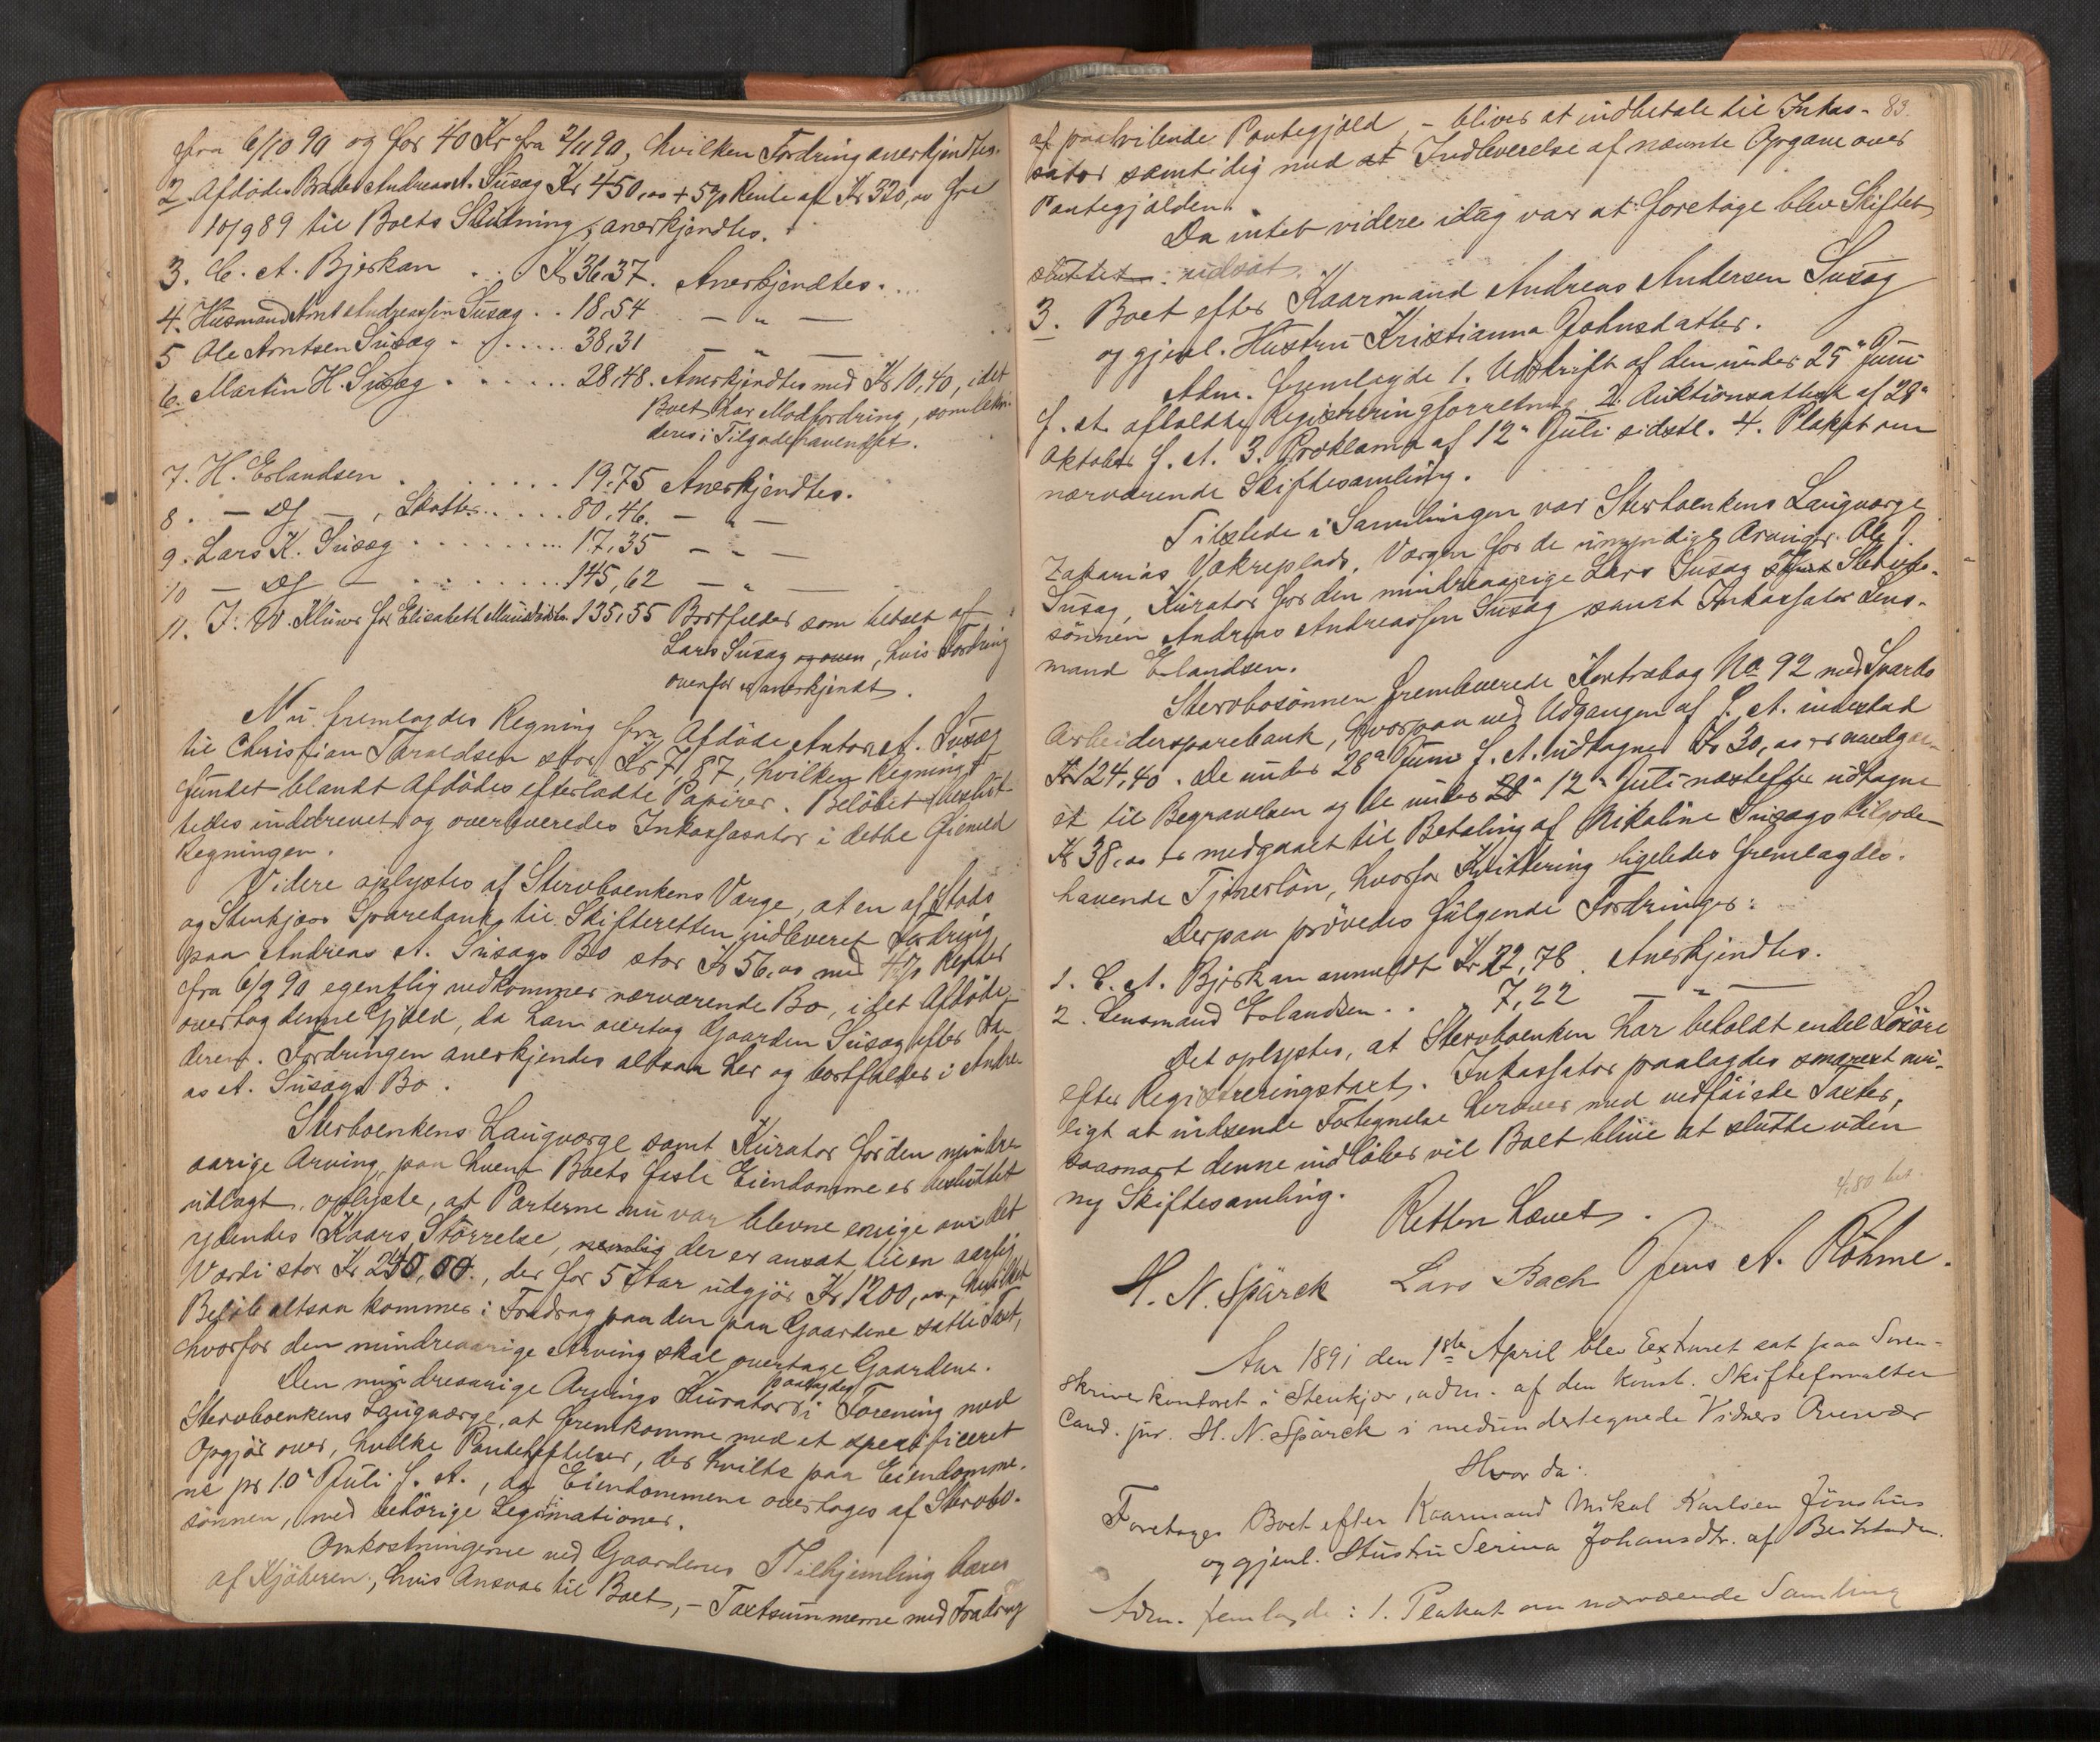 fra 6/10 90 og for 40 Kr fra 2/11 90, hvilken Fordring anerkjendtes.
2. Afdødes Broder Andreas A. Susæg Kr 450,00 + 5% Rente af Kr 320,00 fra
10/9 89 til Boets Slutning, anerkjendtes.
3. C. A. Bjerkan . . Kr 36,37. Anerkjendtes.
4. Husmand Arnt Andreassen Susæg . . 18,54 — „ —
5 Ole Arntsen Susæg . . . . . . 38,31 — „ —
6. Martin H. Susæg . . . . . . 28,48. Anerkjendtes med Kr 10,40, idet
Boet har Modfordring, som
deres i Tilgodehavendet.
7. H. Erlandsen . . . . . . . 19,75 Anerkjendtes.
8. — Ds —, Skatter . . . . . 80,46. — „ —
9. Lars K. Susæg . . . . . . . 17,35 — „ —
10 — Ds — . . . . . . . 145,62 — „ —
11. I. W. Klüwer for Elisabeth 135,55 Bortfalder som betalt af
Lars Susæg og oven, hvis Fordring
ovenfor er anerkjendt.
Nu fremlagdes Regning fra Afdøde Anton A. Susæg
til Christian Taraldsen stor Kr 71,87, hvilken Regning er
fundet blandt Afdødes efterladte Papirer. Beløbet beslut-
tedes inddrevet og overleveredes Inkassator i dette Øiemed
Regningen.
Videre oplystes af Stervboenkens Værge, at en af Stods
og Stenkjærs Sparebank til Skifteretten indleveret Fordring
paa Andreas A. Susægs Bo stor Kr 56,00 med Renter
fra 6/9 90 egentlig vedkommer nærværende Bo, idet Afdøde
overtog denne Gjæld, da han overtog Gaarden Susæg efter Fa-
deren. Fordringen anerkjendes altsaa her og bortfalder i Andre-
as A. Susægs Bo.
Sterboenkens Laugværge samt Kurator for den mindre-
aarige Arving, paa hvem Boets faste Eiendomme er besluttet
udlagt, oplyste, at Parterne nu var blevne enige om det
ydendes Kaars Størrelse, nemlig der er ansat til en aarlig
Værdi stor Kr 240,00, der for 5 Aar udgjør Kr 1200,00, hvilket
Beløb altsaa kommer i Fradrag paa den paa Gaardene satte Taxt,
hvorfor den mindreaarige Arving skal overtage Gaardene.
Den mindreaarige Arvings Kurator paalagdes i Forening med
Stervboenkens Laugværge, at fremkomme med et specificeret
Opgjør over, hvilke Pantehæftelser, der hvilte paa Eiendomme-
ne pr 10 Juli f. A., da Eiendommene overtoges af Stervbo-
sønnen, med behørige Legitimationer.
Omkostningerne ved Gaardenes Tilhjemling bæres
af Kjøberen, hvis Ansvar til Boet, — Taxtsummerne med Fradrag
83.
af paahvilende Pantegjæld, — bliver at indbetale til Inkas-
sator samtidig med at Indleverelse af nævnte Opgave over
Pantegjælden.
Da intet videre idag var at foretage blev Skiftet
sluttet: udsat.
3. Boet efter Kaarmand Andreas Andersen Susæg
og gjenl. Hustru Kristianna Johnsdatter.
Adm. fremlagde 1. Udskrift af den under 25 Juni
f. A. afholdte Registreringsforretning 2. Auktionsattest af 28
Oktober f. A. 3. Proklama af 12 Juli sidstl. 4. Plakat om
nærværende Skiftesamling.
Tilstede i Samlingen var Sterboenkens Laugværge
Zakarias Vækreplads, Værgen for de umyndige Arvinger Ole J.
Susæg, Kurator for den mindreaarige Lars Susæg Stervbo-
sønnen Andreas Andreassen Susæg samt Inkassator Lens-
mand Erlandsen.
Stervbosønnen fremleverede Kontrabog No 92 med Sparbo
Arbeidersparebank, hvorpaa ved Udgangen af f. A. indestod
Kr 124,40. De under 28 Juni f. A. udtagne Kr 30,00 er medgaa-
et til Begravelsen og de under 28 12 Juli næstefter udtagne
Kr 38,00 er medgaaet til Betaling af Nikoline Susægs tilgode-
havende Tjenerløn, hvorfor Kvittering ligeledes fremlagdes.
Derpaa prøvedes følgende Fordringer:
1. C. A. Bjerkan anmeldt Kr 22,78. Anerkjendtes.
2. Lensmand Erlandsen . . „ 7,22 — „ —
Det oplystes, at Stervboenken har beholdt endel Løsøre
efter Registreringstaxt. Inkassator paalagdes snarest mu-
ligt at indsende Fortegnelse herover med vedføiede Taxter,
saasnart denne indløber vil Boet blive at slutte uden
ny Skiftesamling.
4,80 bet
Retten hævet.
H. N. Spärck Lars Bach Jens A. Böhme.
Aar 1891 den 1ste April blev Extraret sat paa Soren-
skriverkontoret i Stenkjær, adm. af den konst. Skifteforvalter
Cand. jur. H. N. Spärck i medundertegnede Vidners Overvær
Hvor da:
Foretoges Boet efter Kaarmand Mikal Karlsen Jønshus
og gjenl. Hustru Serina Johansdtr. af Beitstaden.
Adm. fremlagde: 1. Plakat om nærværende Samling